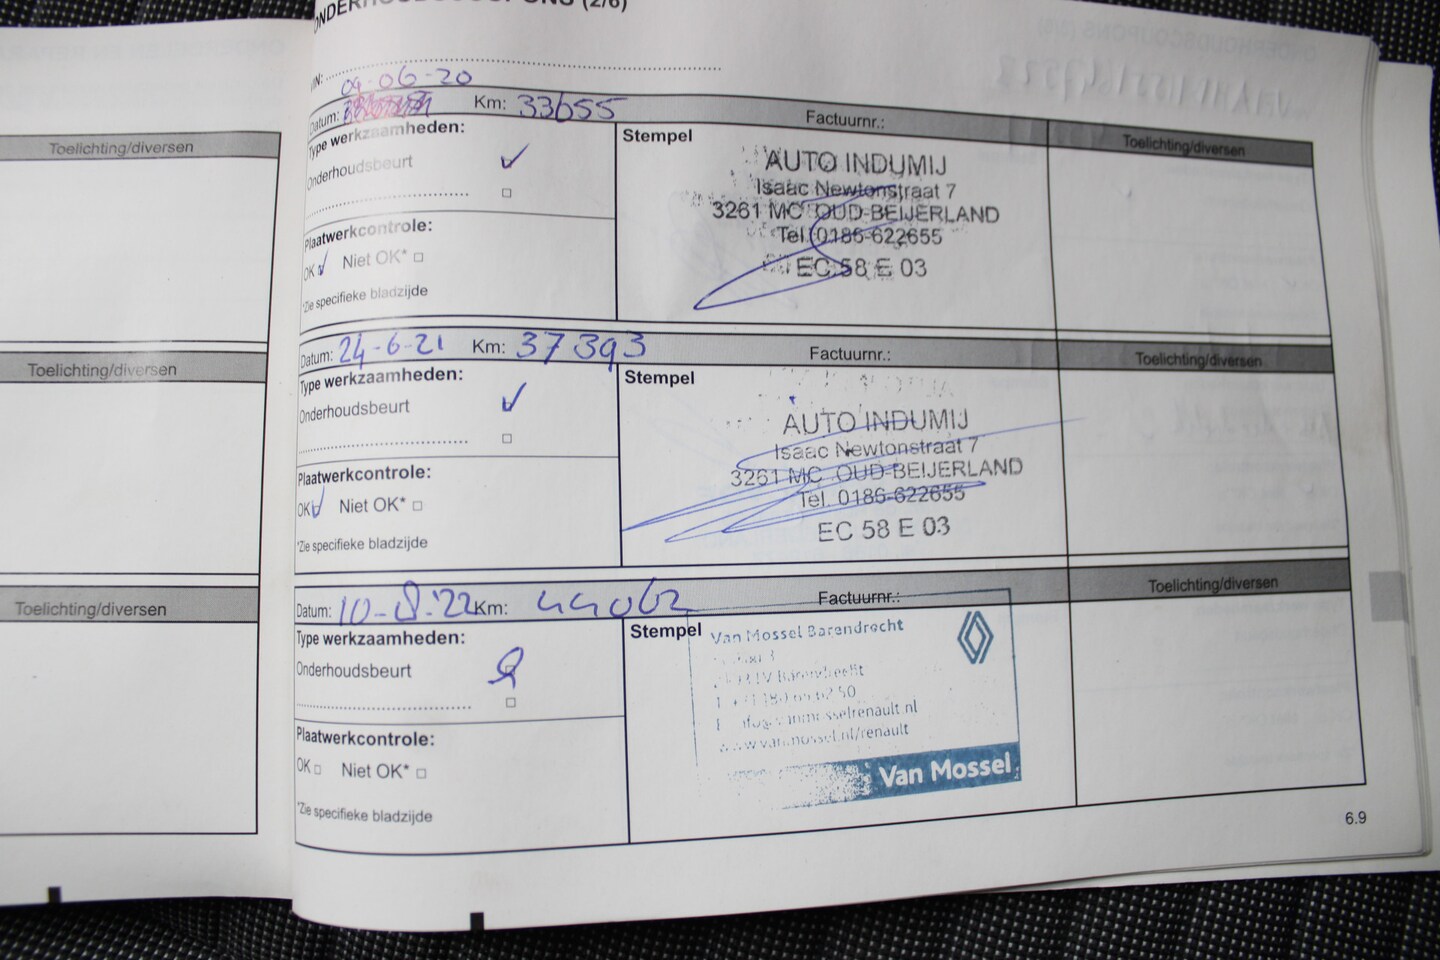 ONDERHOUDSCOUPONS (2/6)
VIN:
09-06-20
Datum: Km: 33655 Factuurnr.: Toelichting/diversen
Type werkzaamheden:
Stempel
Onderhoudsbeurt
AUTO INDUMIJ
Isaac Newtonstraat 7
3261 MC OUD-BEIJERLAND
Tel. 0186-622655
EC 58 E 03
Plaatwerkcontrole:
OK Niet OK*
*Zie specifieke bladzijde
Datum: 24-6-21 Km: 37393 Factuurnr.: Toelichting/diversen
Type werkzaamheden:
Stempel
Onderhoudsbeurt
AUTO INDUMIJ
Isaac Newtonstraat 7
3261 MC OUD-BEIJERLAND
Tel. 0186-622655
EC 58 E 03
Plaatwerkcontrole:
OK Niet OK*
*Zie specifieke bladzijde
Datum: 10-8-'22 Km: 44062 Factuurnr.: Toelichting/diversen
Type werkzaamheden:
Stempel
Onderhoudsbeurt
Van Mossel Barendrecht
Barendrecht
www.vanmossel.nl/renault
Van Mossel
Plaatwerkcontrole:
OK Niet OK*
*Zie specifieke bladzijde
6.9
Toelichting/diversen
Toelichting/diversen
Toelichting/diversen